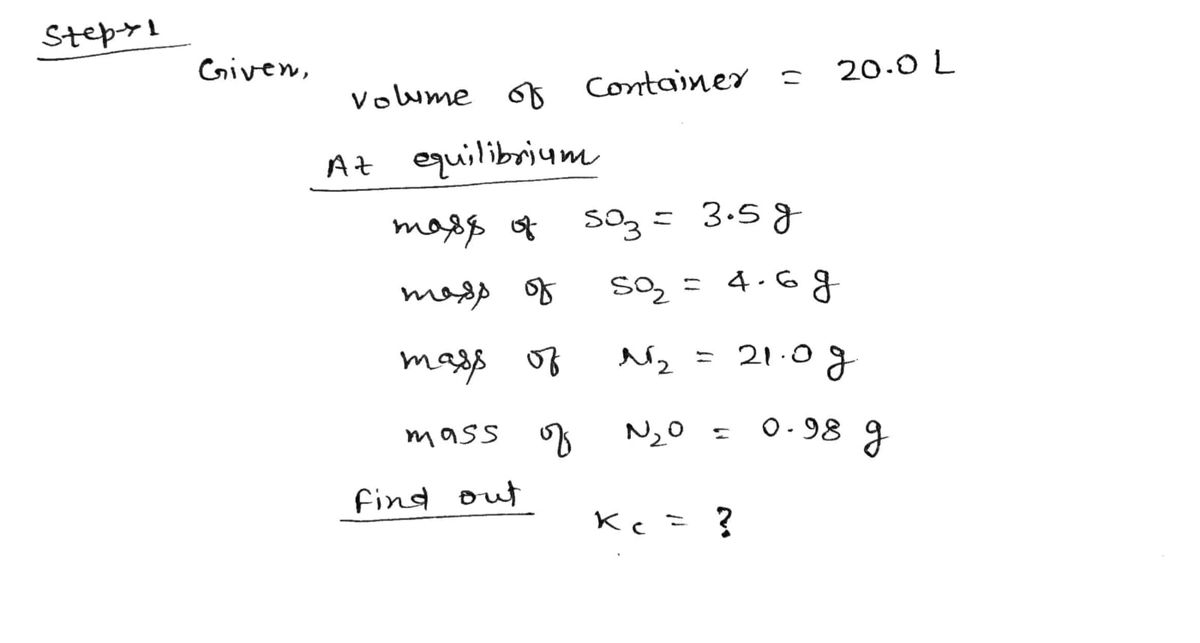 Step→1
Given,
Volume of Container = 20.0 L
At equilibrium
mass of SO₃ = 3.5 g
mass of SO₂ = 4.6 g
mass of N₂ = 21.0 g
mass of N₂O = 0.98 g
find out
Kc = ?